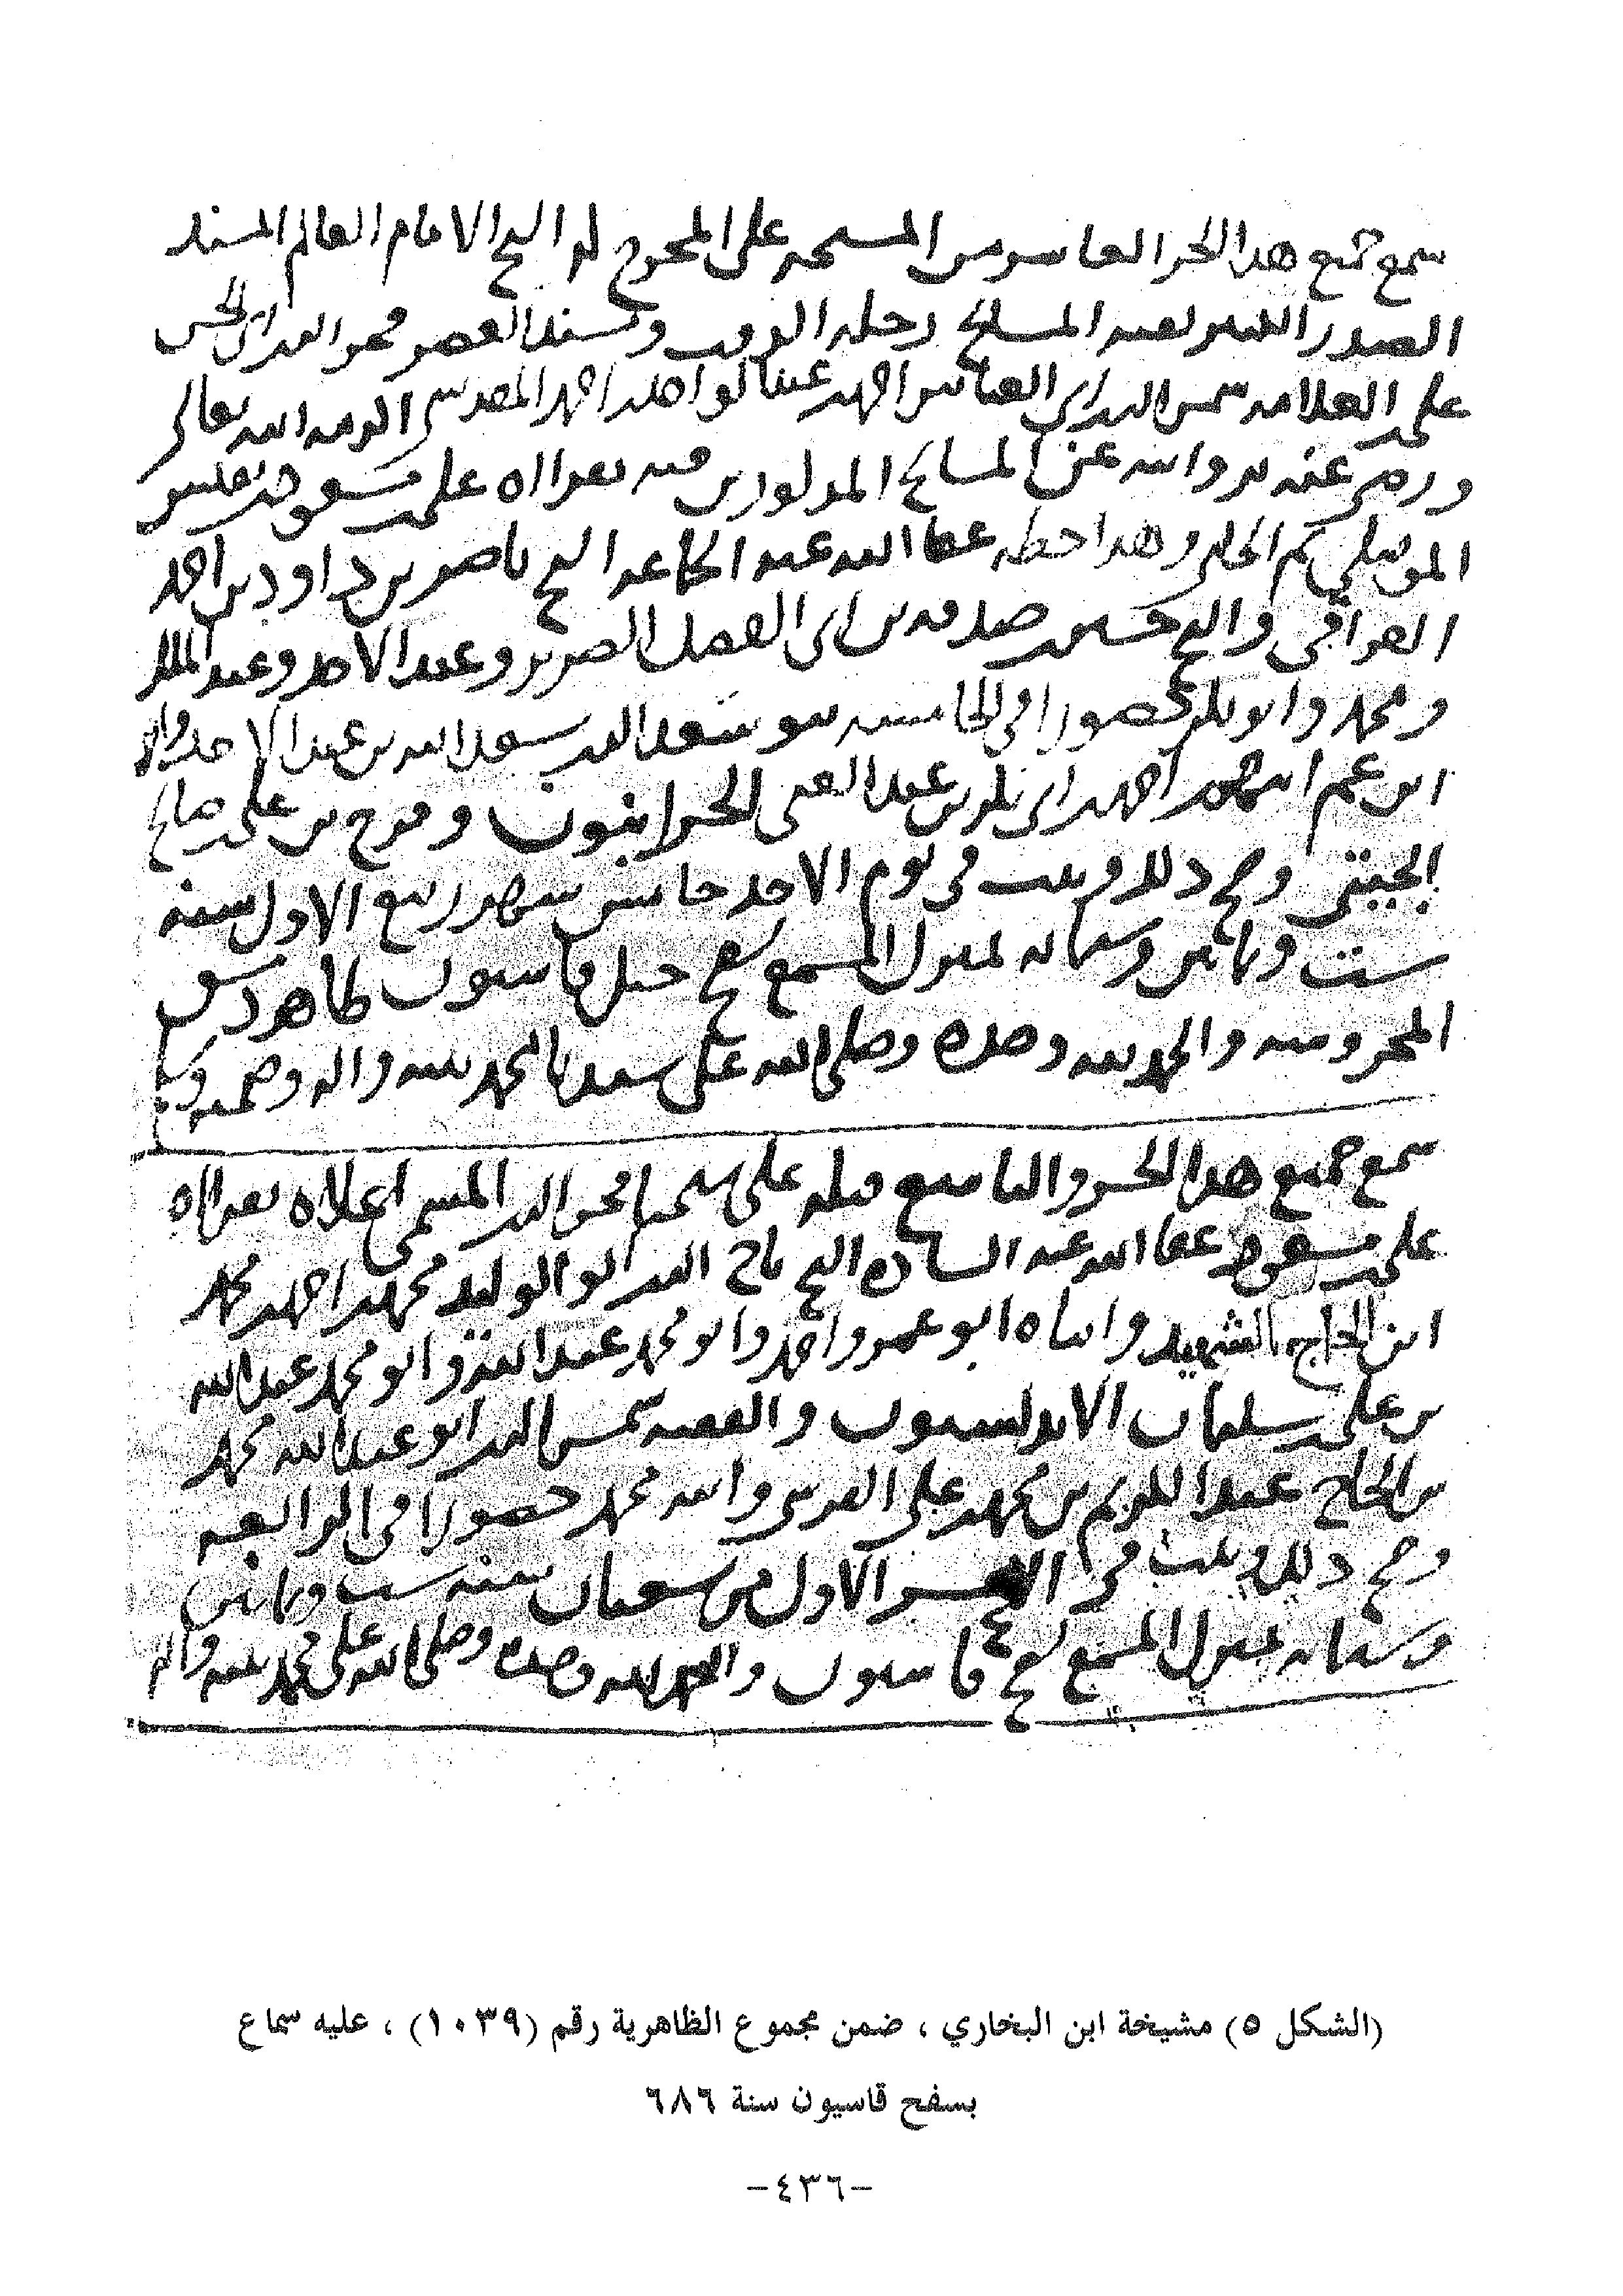 سمع جميع هذا الجزء العاشر من المشيخة على المخرج له الشيخ الامام العالم المسند
الصدر الكبير بقية المشايخ رحلة الوقت ومسند العصر فخر الدين ابي الحسن
علي بن العلامة شمس الدين ابي العباس احمد بن عبد الواحد بن احمد المقدسي اكرمه الله تعالى
ورضي عنه بروايته عن المشايخ المذكورين فيه بقراءة علي بن مسعود بن نفيس
الموصلي ثم الحلبي وهذا خطه عفا الله عنه الجماعة الشيخ ناصر بن داود بن احمد
العراقي والشيخ حسين بن صدقة بن ابي الفضل الضرير وعبد الاحد وعبد الملك
ومحمد وابو بكر حضورا في الخامسة بنو سعد الدين سعد الله بن عبد الاحد
ابن عمهم احمد بن ابي بكر بن عبد الغني الحرانيون وفرج بن علي بن صالح
الجيتي وصح ذلك وثبت في يوم الاحد خامس شهر ربيع الاول سنة
ست وثمانين وستمائة بمنزل المسمع بسفح جبل قاسيون ظاهر دمشق
المحروسة والحمد لله وحده وصلى الله على سيدنا محمد نبيه واله وصحبه
سمع جميع هذا الجزء والتاسع قبله على شيخنا فخر الدين المسمى اعلاه بقراءة
علي بن مسعود عفا الله عنه السادة الشيخ تاج الدين ابو الوليد محمد بن احمد بن محمد
ابن الحاج الشهيد وابناه ابو عمرو احمد وابو محمد عبد الله وابو محمد عبد الله
بن علي بن سليمان الاندلسيون والفقيه شمس الدين ابو عبد الله محمد
بن الحاج عبد الكريم بن محمد بن علي وابنه محمد حضورا في الرابعة
وصح ذلك وثبت في العشر الاول من شعبان سنة ست وثمانين
وستمائة بمنزل المسمع بسفح قاسيون والحمد لله وحده وصلى الله على محمد نبيه واله
(الشكل ٥) مشيخة ابن البخاري ، ضمن مجموع الظاهرية رقم (١٠٣٩) ، عليه سماع
بسفح قاسيون سنة ٦٨٦
-٤٣٦-